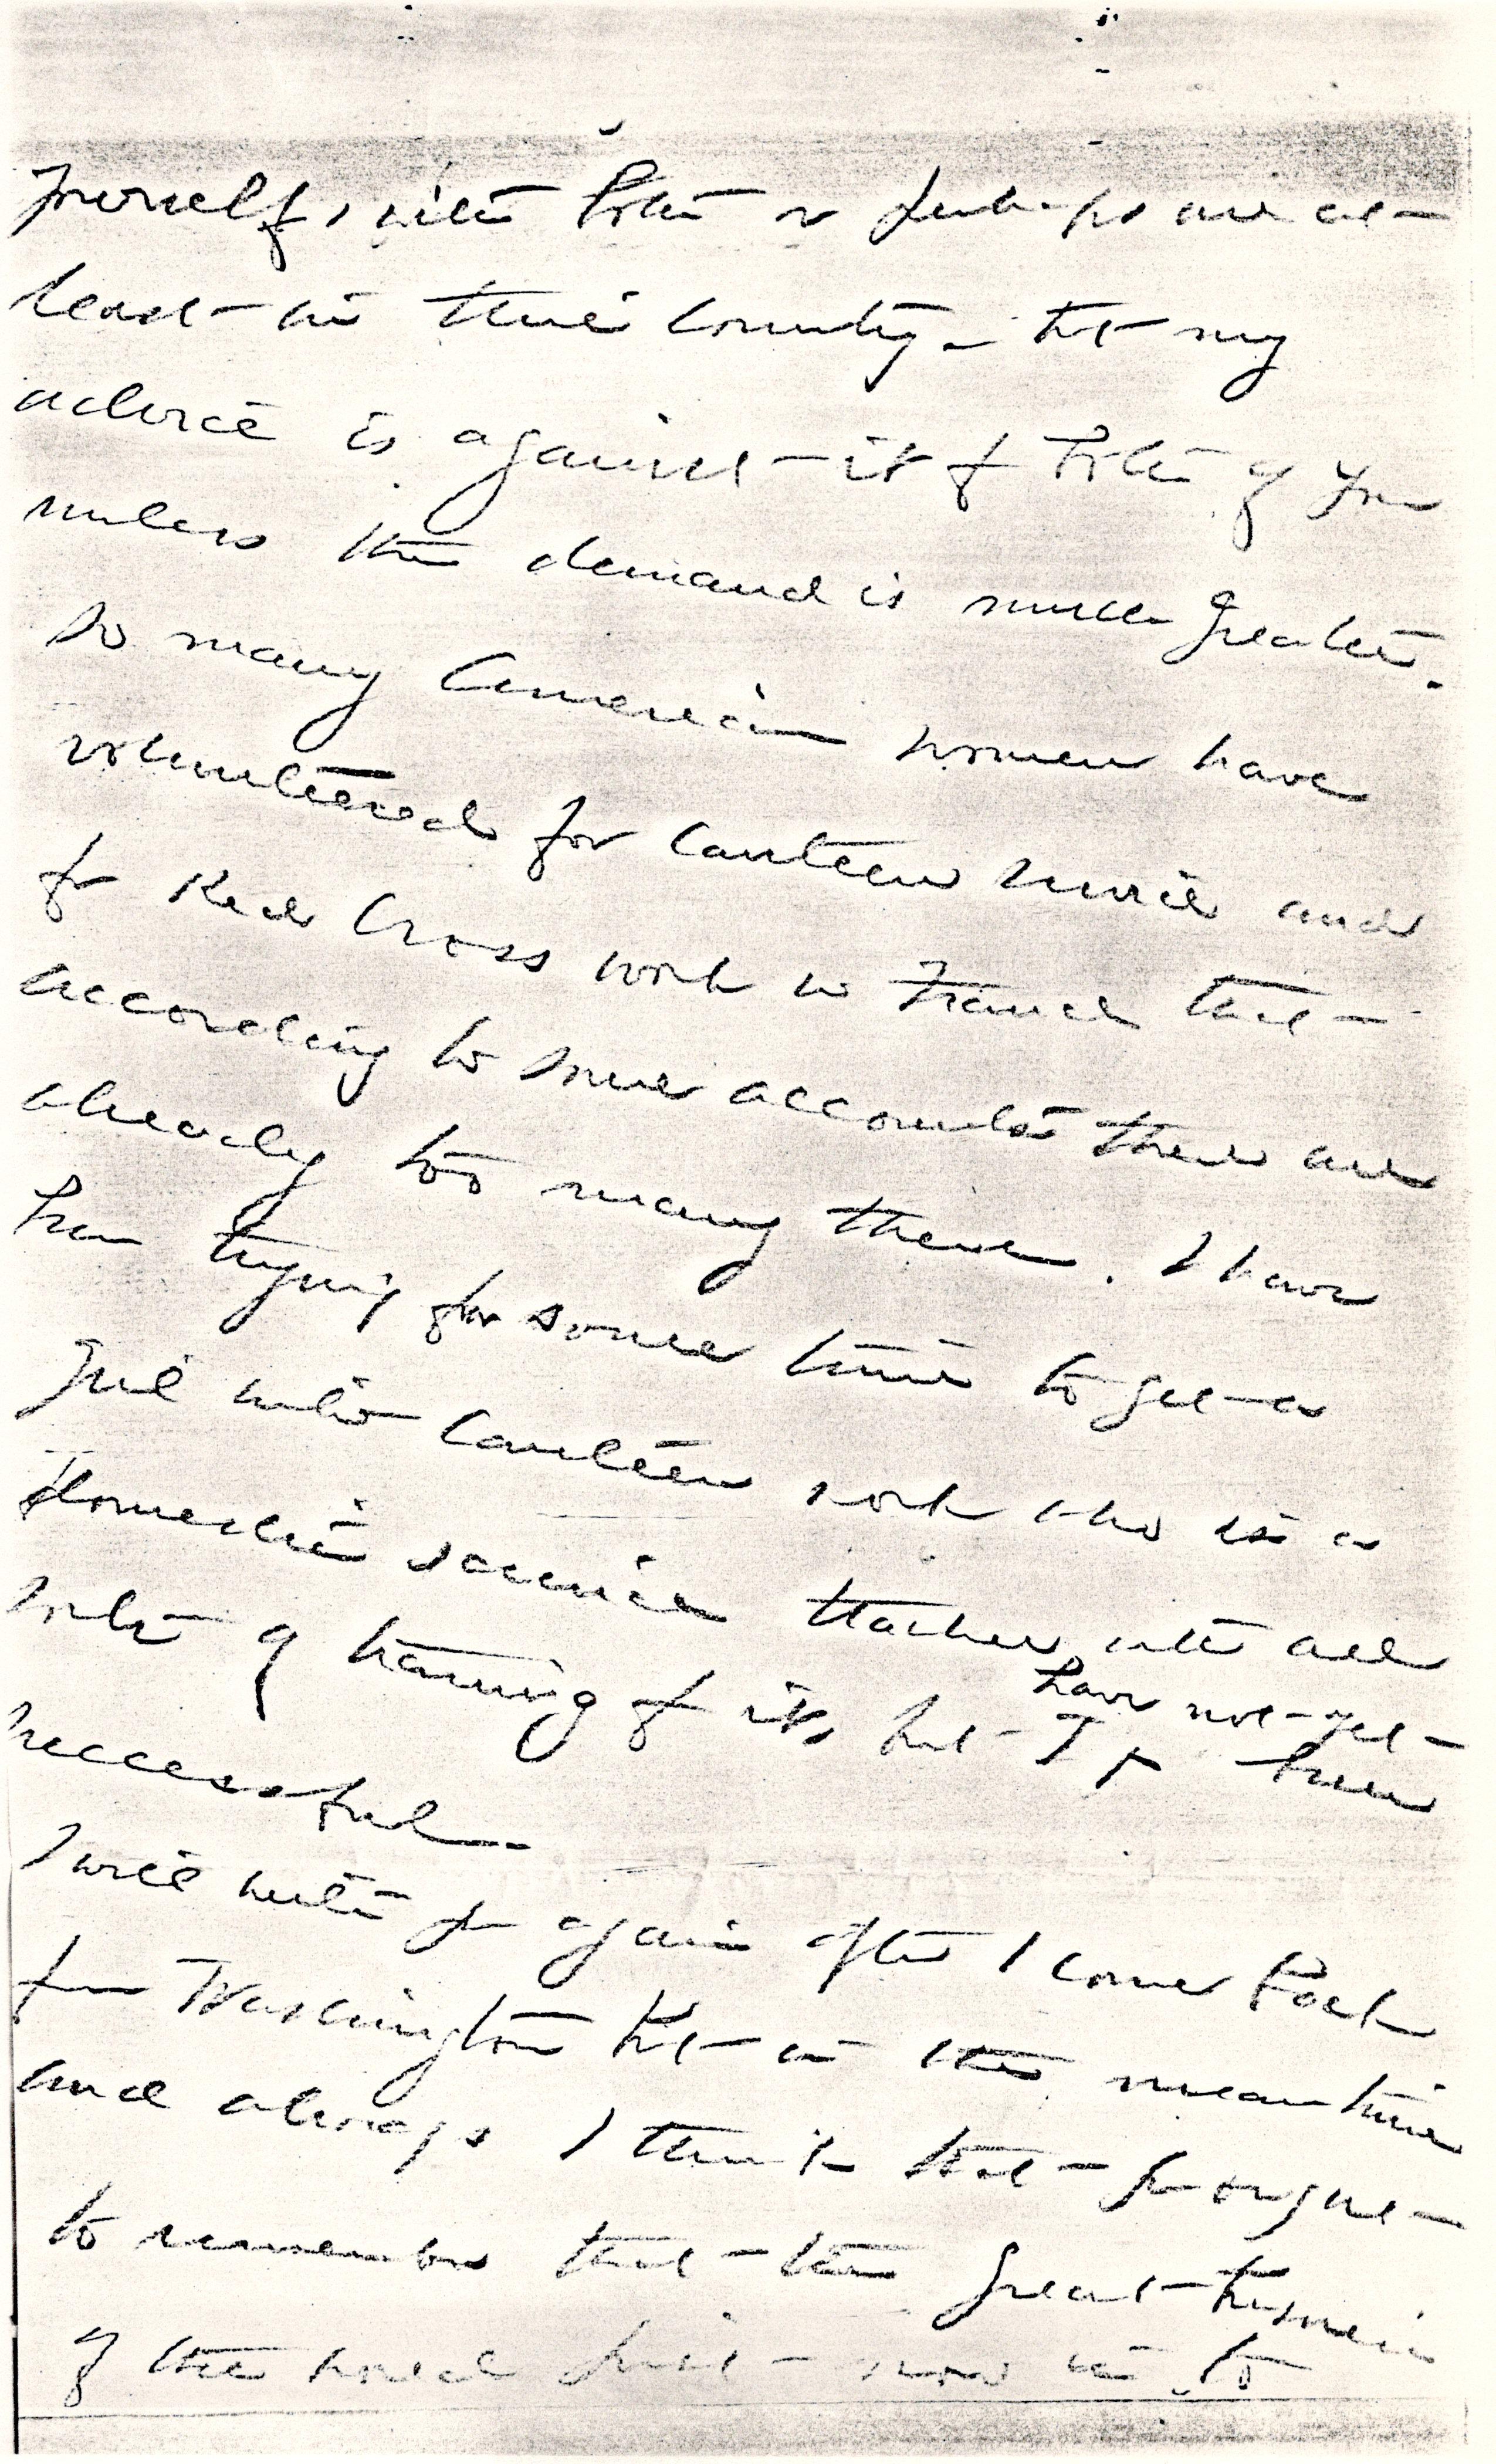 yourself, with both or perhaps one at
least in this country - but my
advice is against it for both of you
unless the demand is much greater.
So many American women have
volunteered for Canteen service and
for Red Cross work in France that
according to some accounts there are
already too many there. I have
been trying for some time to get a
girl into Canteen work who is a
Domestic science teacher with all
sorts of training for it, but I have not yet been
successful -
I will write you again after I come back
from Washington but in the meantime
and always I think that you ought
to remember that the great business
of the world just now is to